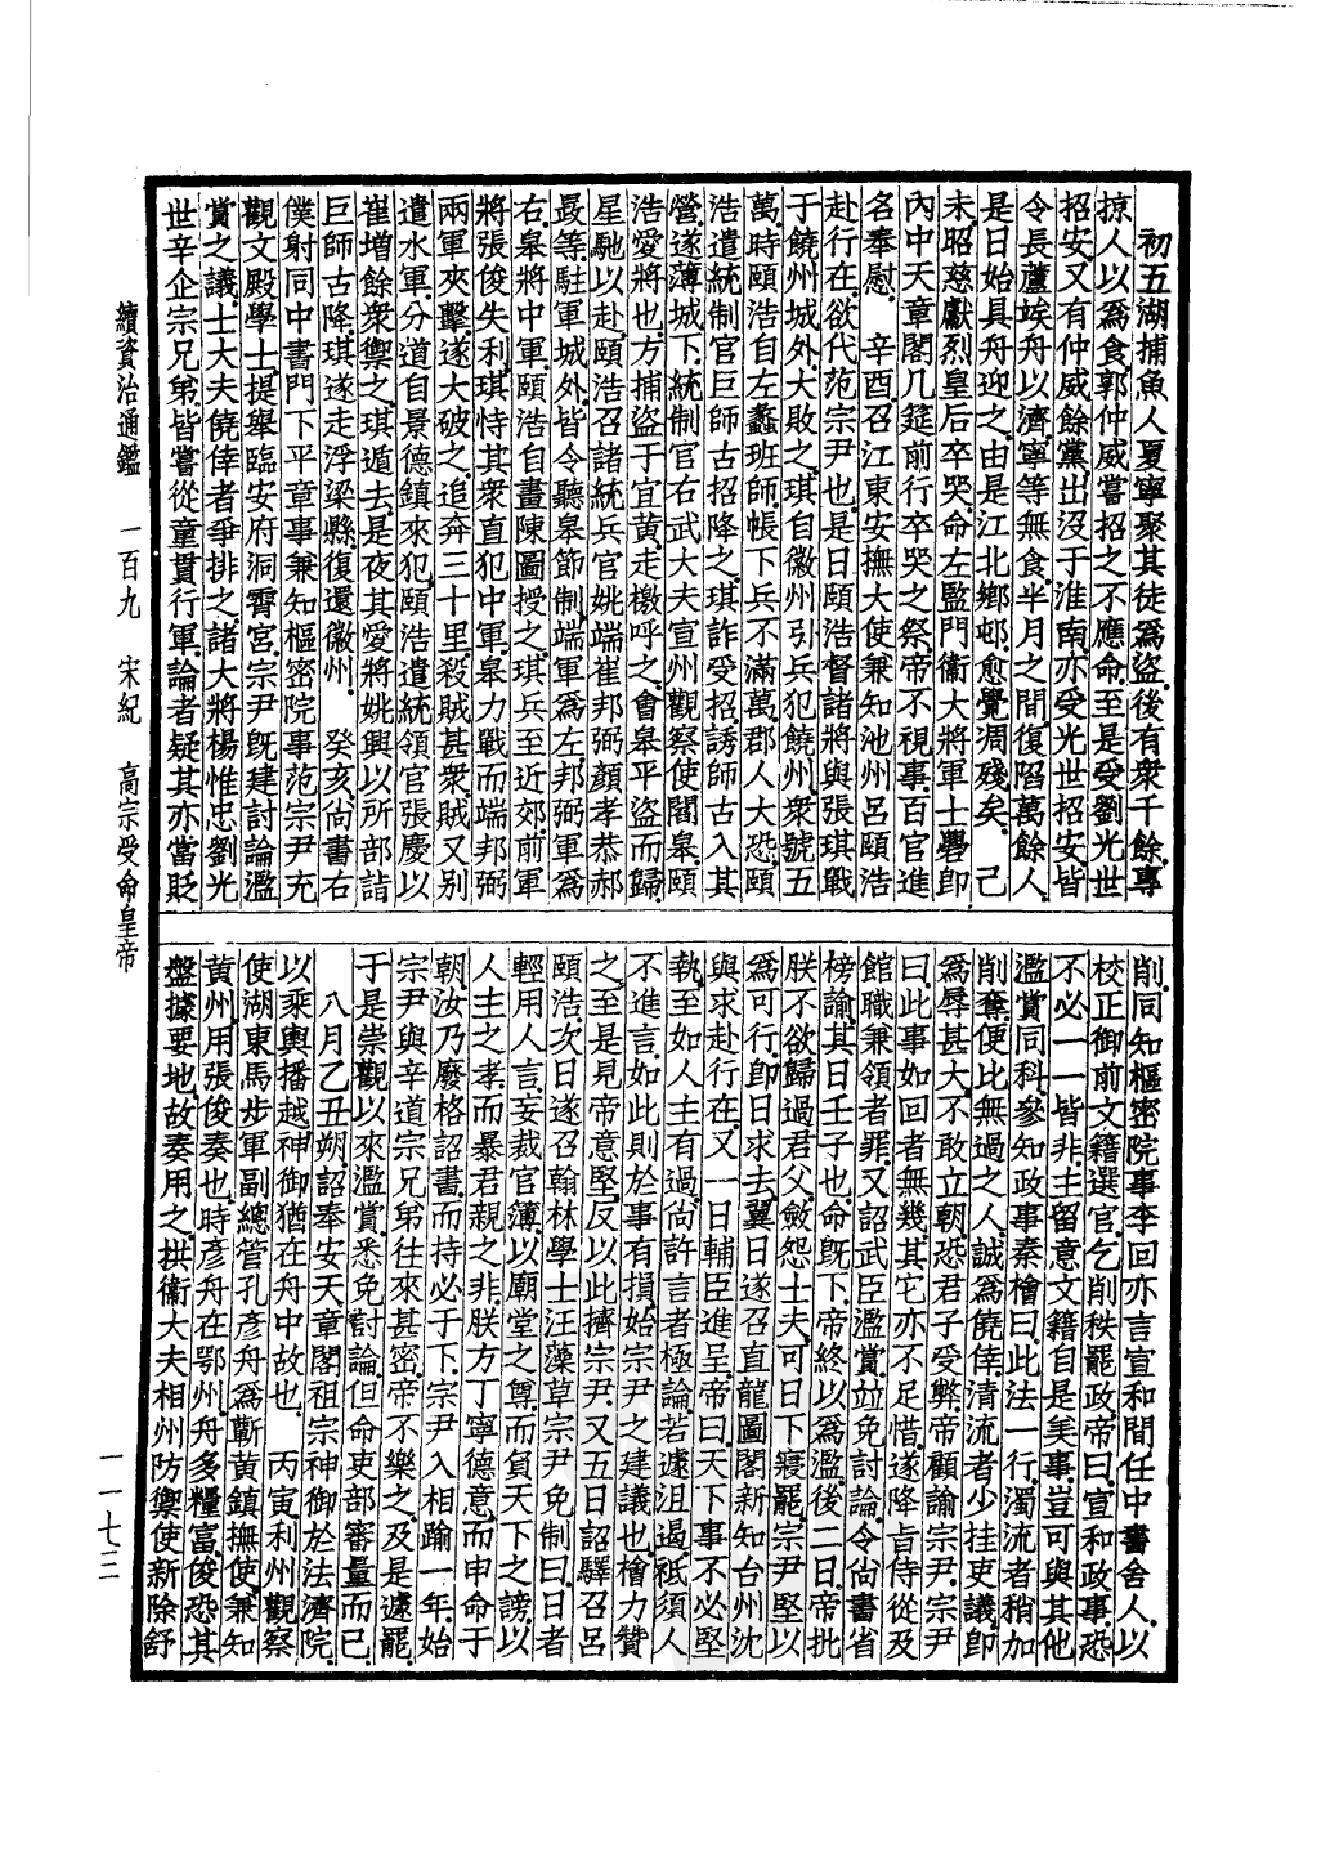 初五湖捕魚人夏寧聚其徒爲盜.後有衆千餘.專
掠人以爲食.郭仲威嘗招之不應命.至是受劉光世
招安.又有仲威餘黨.出沒于淮南.亦受光世招安.皆
令長蘆埃舟以濟.寧等無食.半月之間.復陷萬餘人.
是日始具舟迎之.由是江北鄉邨愈覺凋殘矣.　己
未.昭慈獻烈皇后卒哭.命左監門衞大將軍士㒟卽
內中天章閣几筵前行卒哭之祭.帝不視事.百官進
名奉慰.　辛酉.召江東安撫大使兼知池州呂頤浩
赴行在.欲代范宗尹也.是日頤浩督諸將與張琪戰
于饒州城外.大敗之.琪自徽州引兵犯饒州.衆號五
萬.時頤浩自左蠡班師.帳下兵不滿萬.郡人大恐.頤
浩遣統制官巨師古招降之.琪詐受招.誘師古入其
營.遂薄城下.統制官右武大夫宣州觀察使閻皋.頤
浩愛將也.方捕盜于宜黃.走檄呼之.會皋平盜而歸.
星馳以赴.頤浩召諸統兵官姚端崔邦弼顏孝恭郝
晸等.駐軍城外.皆令聽皋節制.端軍爲左.邦弼軍爲
右.皋將中軍.頤浩自畫陳圖授之.琪兵至近郊.前軍
將張俊失利.琪恃其衆直犯中軍.皋力戰而端邦弼
兩軍夾擊.遂大破之.追奔三十里.殺賊甚衆.賊又別
遣水軍.分道自景德鎮來犯.頤浩遣統領官張慶以
崔增餘衆禦之.琪遁去.是夜其愛將姚興以所部詣
巨師古降.琪遂走浮梁縣.復還徽州.　癸亥.尙書右
僕射同中書門下平章事兼知樞密院事范宗尹充
觀文殿學士.提舉臨安府洞霄宮.宗尹旣建討論濫
賞之議.士大夫僥倖者爭排之.諸大將楊惟忠劉光
世辛企宗兄弟.皆嘗從童貫行軍.論者疑其亦當貶
削.同知樞密院事李回亦言宣和間任中書舍人.以
校正御前文籍選官.乞削秩罷政.帝曰.宣和政事.恐
不必一一皆非.主留意文籍自是美事.豈可與其他
濫賞同科.參知政事秦檜曰.此法一行.濁流者稍加
削奪.便比無過之人.誠爲僥倖.清流者少挂吏議.卽
爲辱甚大.不敢立朝.恐君子受弊.帝顧諭宗尹.宗尹
曰.此事如回者無幾.其它亦不足惜.遂降旨侍從及
館職兼領者罪.又詔武臣濫賞.竝免討論.令尙書省
榜諭.其日壬子也.命旣下.帝終以爲濫.後二日.帝批
朕不欲歸過君父.斂怨士夫.可日下寢罷.宗尹堅以
爲可行.卽日求去.翼日遂召直龍圖閣新知台州沈
與求赴行在.又一日輔臣進呈.帝曰.天下事不必堅
執.至如人主有過.尙許言者極論.若遽沮遏.祇須人
不進言.如此則於事有損.始宗尹之建議也.檜力贊
之.至是見帝意堅.反以此擠宗尹.又五日.詔驛召呂
頤浩.次日遂召翰林學士汪藻草宗尹免制曰.日者
輕用人言.妄裁官簿.以廟堂之尊.而負天下之謗.以
人主之孝.而暴君親之非.朕方丁寧德意.而申命于
朝.汝乃廢格詔書.而持必于下.宗尹入相踰一年.始
宗尹與辛道宗兄弟往來甚密.帝不樂之.及是遽罷.
于是崇觀以來濫賞.悉免討論.但命吏部審量而已.
八月乙丑朔.詔奉安天章閣祖宗神御於法濟院.
以乘輿播越.神御猶在舟中故也.　丙寅.利州觀察
使湖東馬步軍副總管孔彥舟爲蘄黃鎮撫使.兼知
黃州.用張俊奏也.時彥舟在鄂州.舟多糧富.俊恐其
盤據要地.故奏用之.拱衞大夫相州防禦使新除舒
續資治通鑑　一百九　宋紀　高宗受命皇帝
一一七三